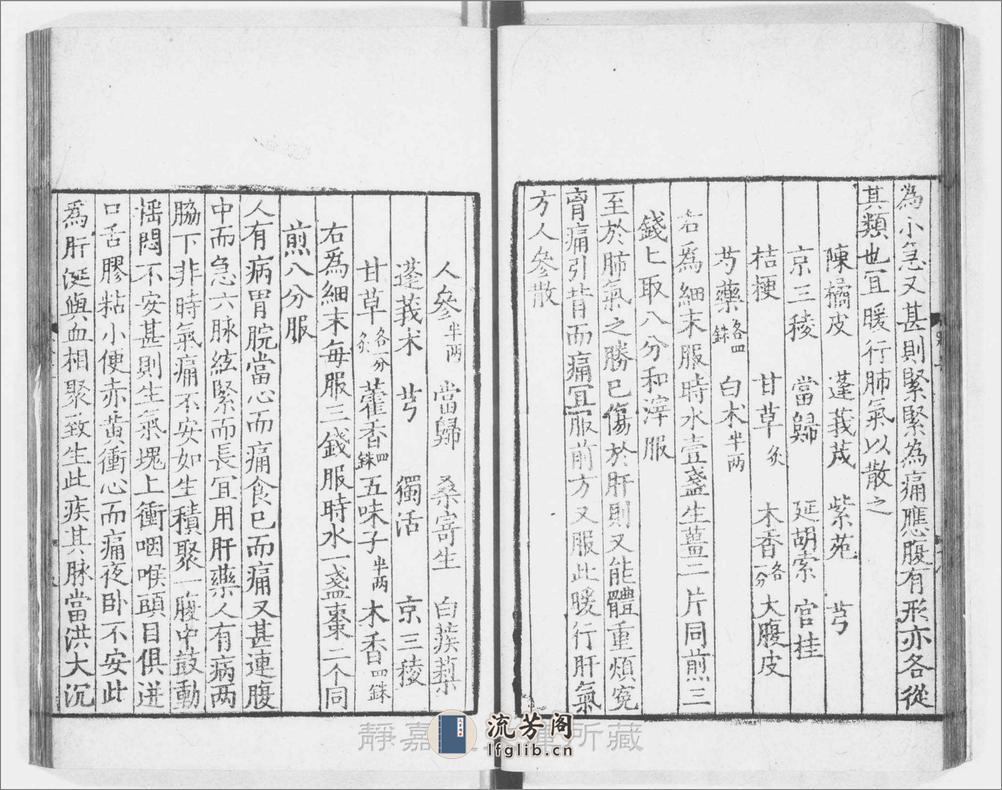 為小急又甚則緊緊為痛應腹有形亦各從
其類也冝暖行肺氣以散之
陳橘皮 蓬莪茂 紫菀 芎
京三稜 當歸 延胡索 官桂
桔梗 甘草炙 木香各一分 大腹皮
芍藥各四銖 白术半两
右為細末服時水壹盞生薑二片同煎三
錢匕取八分和滓服
至於肺氣之勝已傷於肝則又能體重煩寃
胷痛引背而痛冝服前方又服此暖行肝氣
方人參散
人參半两 當歸 桑寄生 白蒺䔧
蓬莪术 芎 獨活 京三稜
甘草各一分炙 藿香四銖 五味子半两 木香四銖
右為細末每服三錢服時水一盞棗二个同
煎八分服
人有病胃脘當心而痛食已而痛又甚連腹
中而急六脉絃緊而長冝用肝藥人有病两
脇下非時氣痛不安如生積聚一腹中鼓動
悶不安甚則生氣塊上衝咽喉頭目俱迸
口舌膠粘小便赤黄衝心而痛夜卧不安此
為肝涎與血相聚致生此疾其脉當洪大沉
靜嘉 所藏
流芳阁
lfglib.cn